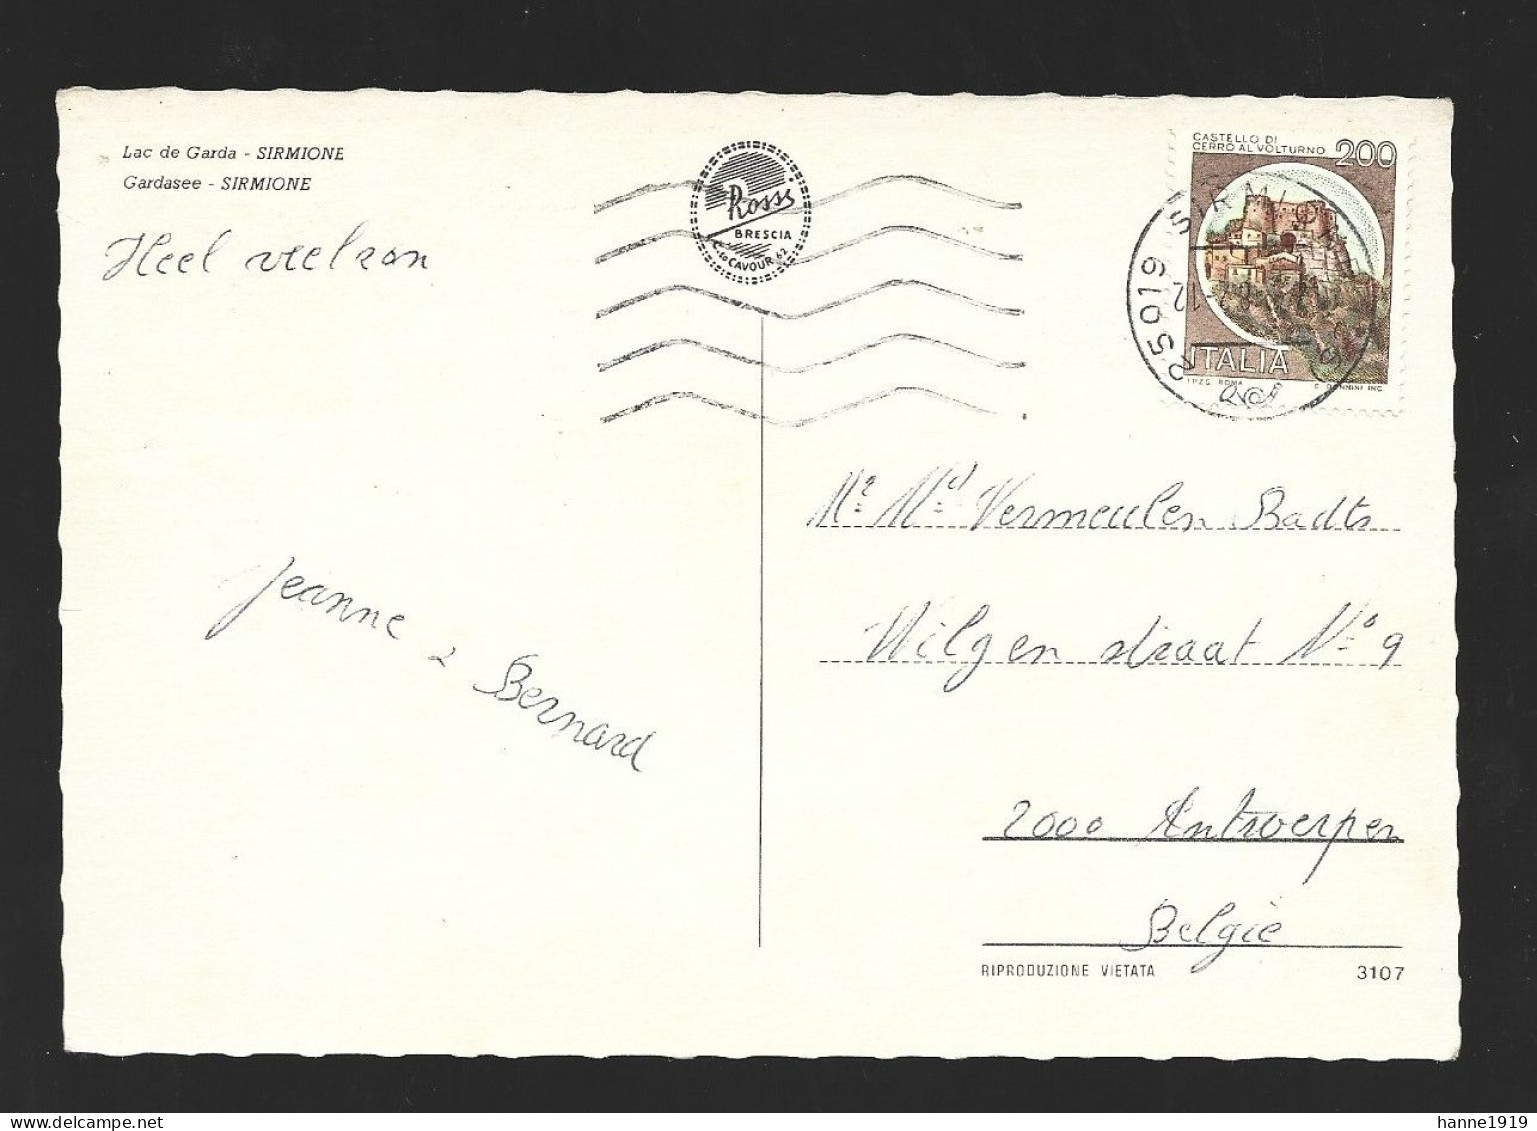 Lac de Garda - SIRMIONE
Gardasee - SIRMIONE
Heel veel zon
Jeanne & Bernard
Rossi
BRESCIA
C.so CAVOUR 62
CASTELLO DI
CERRO AL VOLTURNO
200
ITALIA
I.P.Z.S. ROMA
E. DONNINI INC.
25019 SIRMIONE
Mr Md Vermeulen Radts
Wilgen straat No 9
2000 Antwerpen
België
RIPRODUZIONE VIETATA
3107
hanne1919